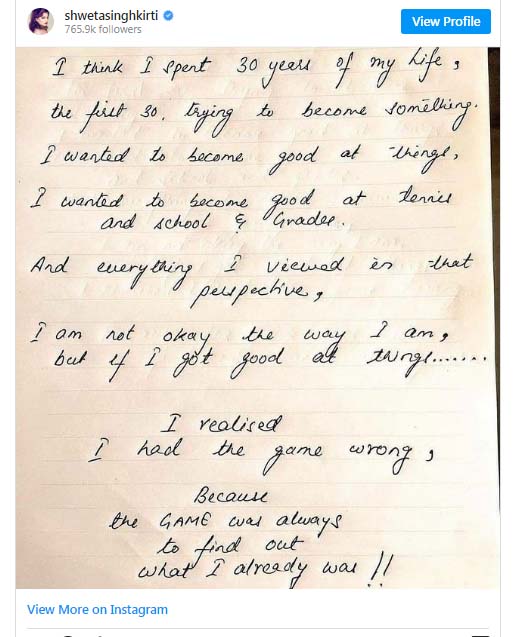 shwetasinghkirti
765.9k followers
View Profile
I think I spent 30 years of my life,
the first 30, trying to become something.
I wanted to become good at things,
I wanted to become good at tennis
and school & Grades.
And everything I viewed in that
perspective,
I am not okay the way I am,
but if I got good at things.......
I realised
I had the game wrong,
Because
the GAME was always
to find out
what I already was !!
View More on Instagram